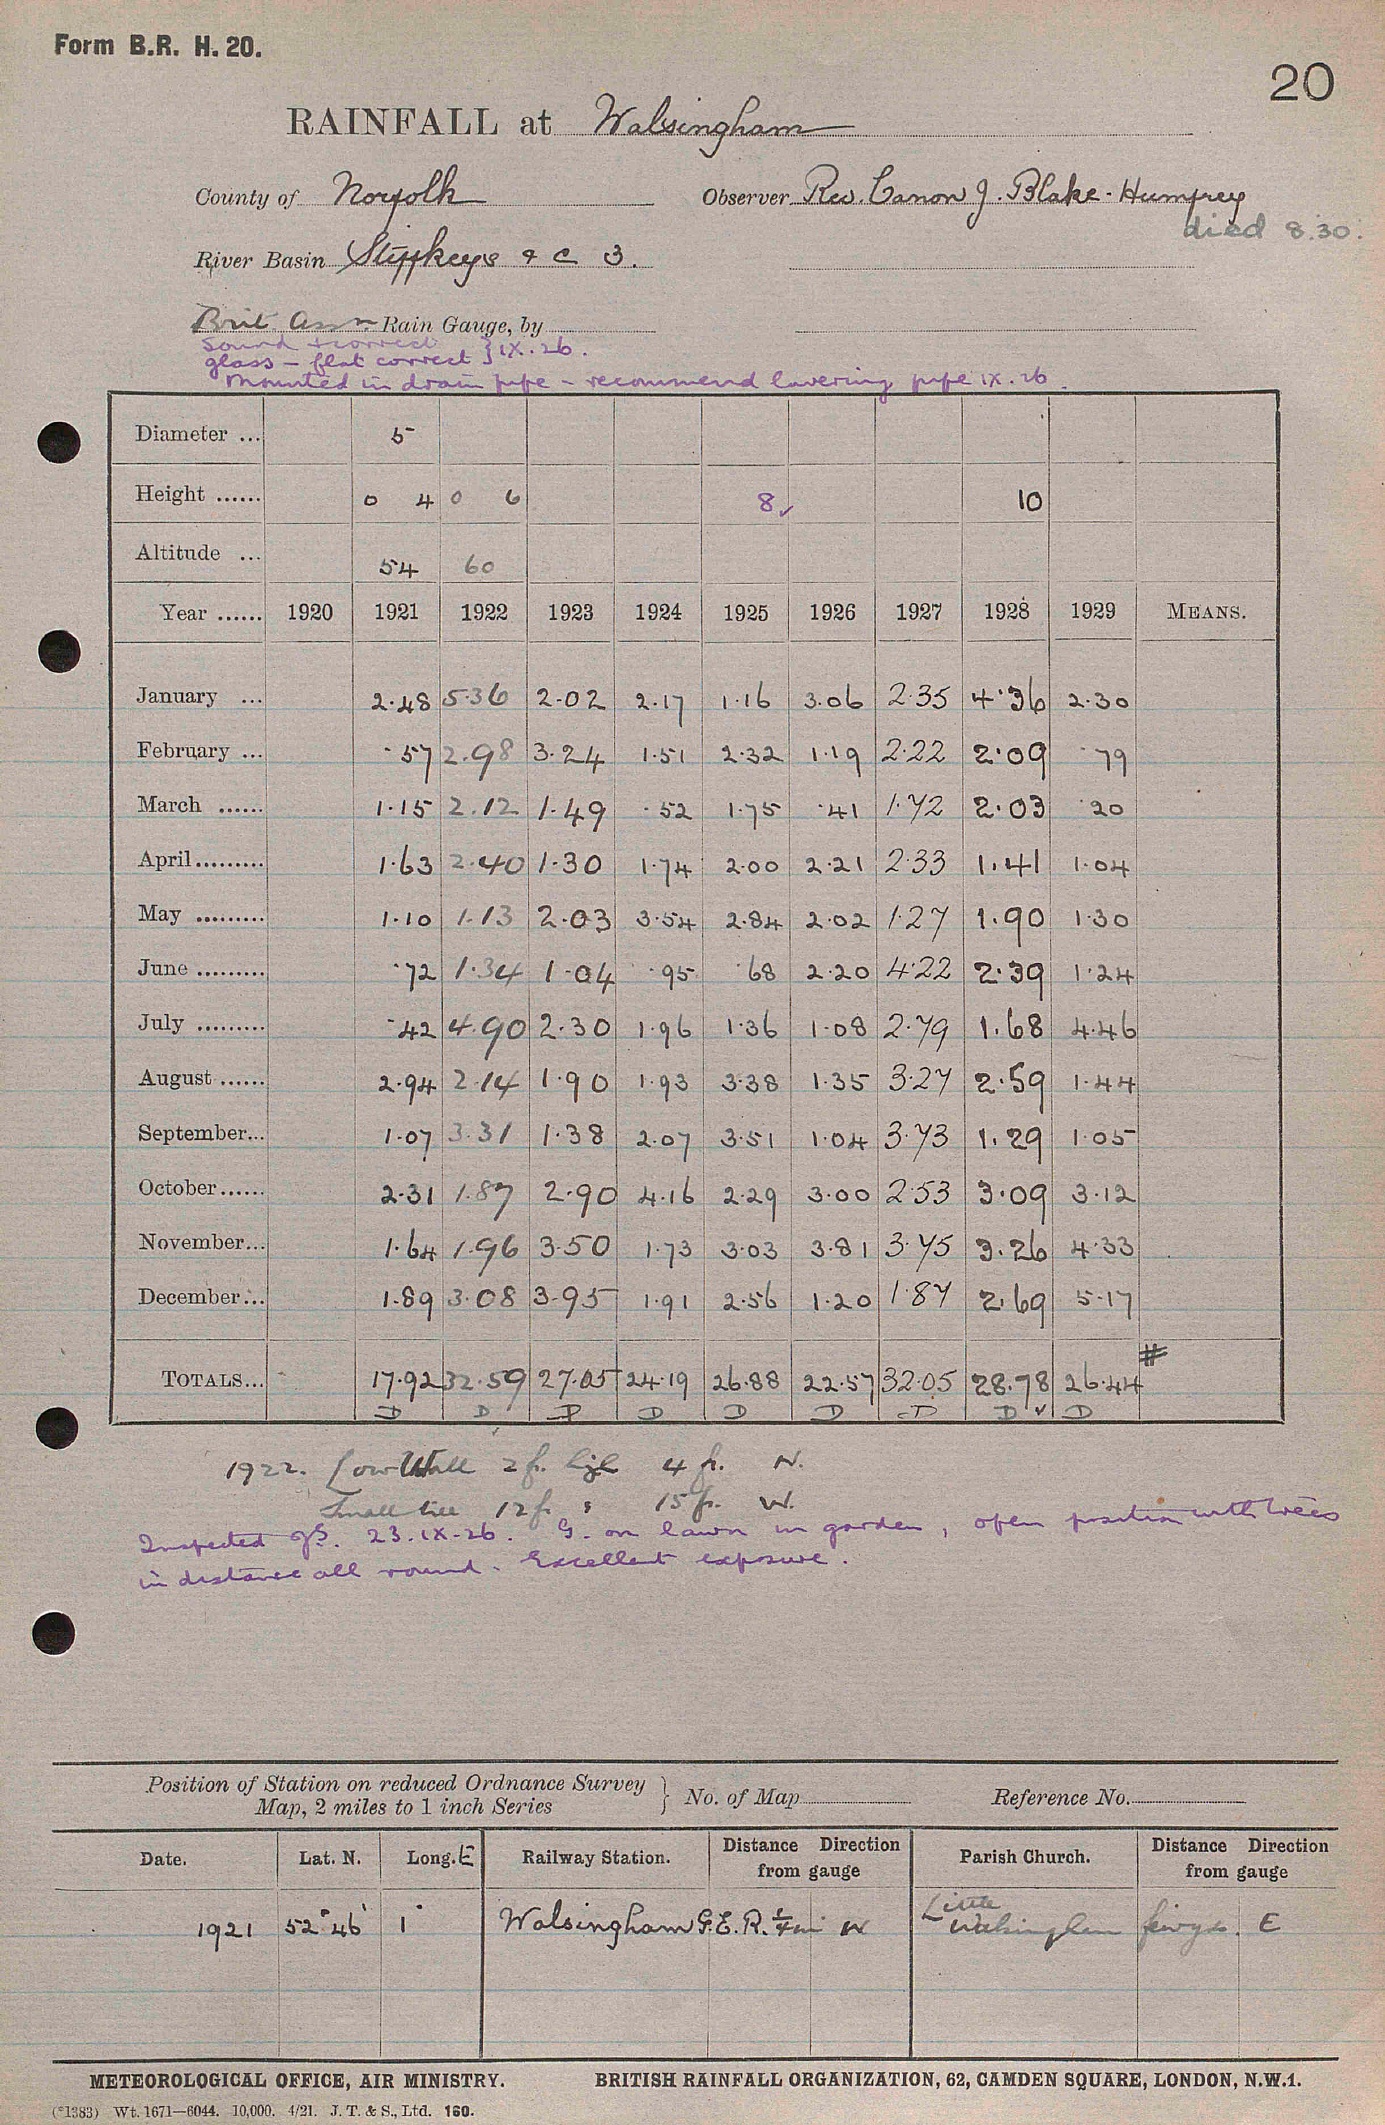 Form B.R. H. 20.
20
RAINFALL at Walsingham
County of Norfolk Observer Rev. Canon J. Blake-Humfrey
died 8.30.
River Basin Stiffkey & C 3.
Brit. Assn Rain Gauge, by
Sound & correct
glass – flat correct } IX.26.
Mounted in drain pipe – recommend lowering pipe IX.26.
Diameter ... 5
Height ...... 0 4 0 6 8 ✓ 10
Altitude ... 54 60
Year ...... 1920 1921 1922 1923 1924 1925 1926 1927 1928 1929 MEANS.
January ... 2.48 5.36 2.02 2.17 1.16 3.06 2.35 4.36 2.30
February ... .57 2.98 3.24 1.51 2.32 1.19 2.22 2.09 .79
March ...... 1.15 2.12 1.49 .52 1.75 .41 1.72 2.03 .20
April......... 1.63 2.40 1.30 1.74 2.00 2.21 2.33 1.41 1.04
May ......... 1.10 1.13 2.03 3.54 2.84 2.02 1.27 1.90 1.30
June ......... .72 1.34 1.04 .95 .68 2.20 4.22 2.39 1.24
July ......... .42 4.90 2.30 1.96 1.36 1.08 2.79 1.68 4.46
August ...... 2.94 2.14 1.90 1.93 3.38 1.35 3.27 2.59 1.44
September... 1.07 3.31 1.38 2.07 3.51 1.04 3.73 1.29 1.05
October...... 2.31 1.87 2.90 4.16 2.29 3.00 2.53 3.09 3.12
November... 1.64 1.96 3.50 1.73 3.03 3.81 3.75 3.26 4.33
December... 1.89 3.08 3.95 1.91 2.56 1.20 1.87 2.69 5.17
#
TOTALS... 17.92 32.59 27.05 24.19 26.88 22.57 32.05 28.78 26.44
D D D D D D D D ✓ D
1922. Low Wall 2 ft. high 4 ft. N.
Small tree 12 ft : 15 ft. W.
Inspected 23.IX.26. G. on lawn in garden, open position with trees
in distance all round. Excellent exposure.
Position of Station on reduced Ordnance Survey
Map, 2 miles to 1 inch Series } No. of Map Reference No.
Date. Lat. N. Long. E Railway Station. Distance Direction from gauge Parish Church. Distance Direction from gauge
1921 52° 46' 1° Walsingham G.E.R. ¼ m W Little Walsingham E
METEOROLOGICAL OFFICE, AIR MINISTRY. BRITISH RAINFALL ORGANIZATION, 62, CAMDEN SQUARE, LONDON, N.W.1.
(*1383) Wt. 1671—6044. 10,000. 4/21. J. T. & S., Ltd. 160.